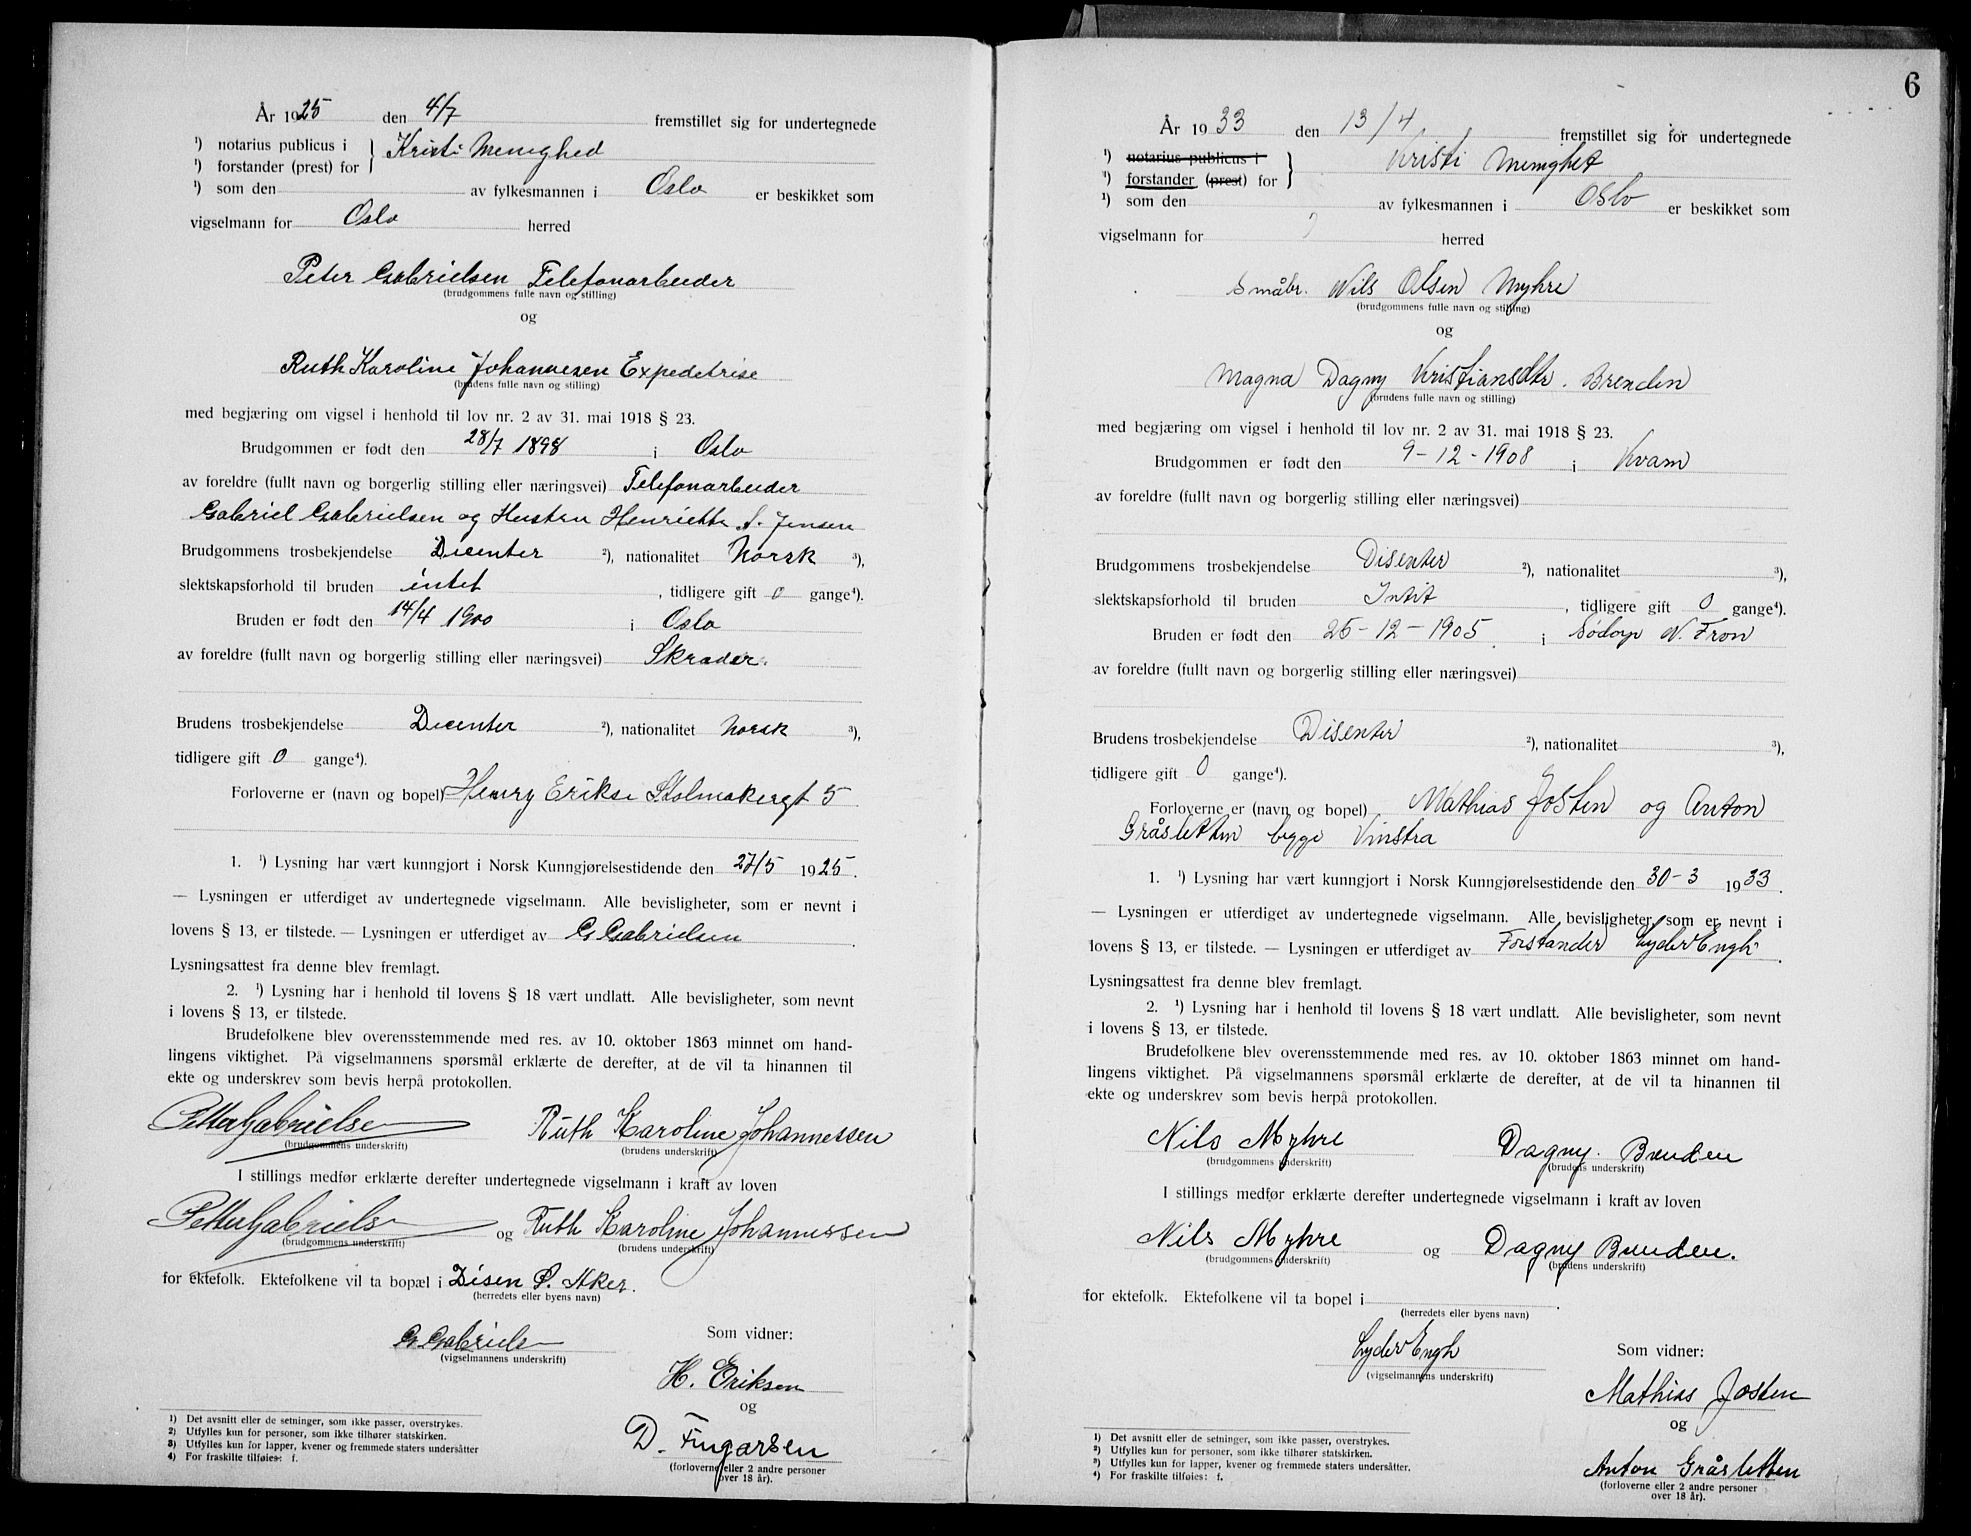 År 1925 den 4/7 fremstillet sig for undertegnede
¹) notarius publicus i
¹) forstander (prest) for } Kristi Menighed
¹) som den av fylkesmannen i Oslo er beskikket som
vigselmann for Oslo herred
Peter Gabrielsen Telefonarbeider
(brudgommens fulle navn og stilling)
og
Ruth Karoline Johannesen Expeditrise
(brudens fulle navn og stilling)
med begjæring om vigsel i henhold til lov nr. 2 av 31. mai 1918 § 23.
Brudgommen er født den 28/7 1898 i Oslo
av foreldre (fullt navn og borgerlig stilling eller næringsvei) Telefonarbeider
Gabriel Gabrielsen og Hustru Henriette S. Jensen
Brudgommens trosbekjendelse Dicenter ²), nationalitet Norsk ³),
slektskapsforhold til bruden intet , tidligere gift 0 gange⁴).
Bruden er født den 14/4 1900 i Oslo
av foreldre (fullt navn og borgerlig stilling eller næringsvei) Skræder.
Brudens trosbekjendelse Dicenter ²), nationalitet Norsk ³),
tidligere gift 0 gange⁴).
Forloverne er (navn og bopel) Henry Erikse Stolmakergt 5
1. ¹) Lysning har vært kunngjort i Norsk Kunngjørelsestidende den 27/5 1925.
— Lysningen er utferdiget av undertegnede vigselmann. Alle bevisligheter, som er nevnt i
lovens § 13, er tilstede. — Lysningen er utferdiget av G Gabrielsen.
Lysningsattest fra denne blev fremlagt.
2. ¹) Lysning har i henhold til lovens § 18 vært undlatt. Alle bevisligheter, som nevnt
i lovens § 13, er tilstede.
Brudefolkene blev overensstemmende med res. av 10. oktober 1863 minnet om hand-
lingens viktighet. På vigselmannens spørsmål erklærte de derefter, at de vil ta hinannen til
ekte og underskrev som bevis herpå protokollen.
Petter Gabrielsen Ruth Karoline Johannessen
(brudgommens underskrift) (brudens underskrift)
I stillings medfør erklærte derefter undertegnede vigselmann i kraft av loven
Petter Gabrielsen og Ruth Karoline Johannessen
(brudgommens underskrift) (brudens underskrift)
for ektefolk. Ektefolkene vil ta bopæl i Disen Ø. Aker.
(herredets eller byens navn)
G Gabrielsen Som vidner:
(vigselmannens underskrift)
H. Eriksen
og
D. Fingarsen
(forloverne eller 2 andre personer
over 18 år).
¹) Det avsnitt eller de setninger, som ikke passer, overstrykes.
²) Utfylles kun for personer, som ikke tilhører statskirken.
³) Utfylles kun for lapper, kvener og fremmede staters undersåtter
⁴) For fraskilte tilføies: f.
6
År 1933 den 13/4 fremstillet sig for undertegnede
¹) notarius publicus i
¹) forstander (prest) for } Kristi Menighet
¹) som den av fylkesmannen i Oslo er beskikket som
vigselmann for herred
Småbr. Nils Olsen Myhre
(brudgommens fulle navn og stilling)
og
Magna Dagny Kristiansdtr. Brenden
(brudens fulle navn og stilling)
med begjæring om vigsel i henhold til lov nr. 2 av 31. mai 1918 § 23.
Brudgommen er født den 9-12-1908 i Kvam
av foreldre (fullt navn og borgerlig stilling eller næringsvei)
Brudgommens trosbekjendelse Disenter ²), nationalitet ³),
slektskapsforhold til bruden Intet , tidligere gift 0 gange⁴).
Bruden er født den 25-12-1905. i Sødorp N. Fron
av foreldre (fullt navn og borgerlig stilling eller næringsvei)
Brudens trosbekjendelse Disenter ²), nationalitet ³),
tidligere gift 0 gange⁴).
Forloverne er (navn og bopel) Mathias Josten og Anton
Gråsletten begge Vinstra
1. ¹) Lysning har vært kunngjort i Norsk Kunngjørelsestidende den 30-3 1933.
— Lysningen er utferdiget av undertegnede vigselmann. Alle bevisligheter, som er nevnt i
lovens § 13, er tilstede. — Lysningen er utferdiget av Forstander Lyder Engh.
Lysningsattest fra denne blev fremlagt.
2. ¹) Lysning har i henhold til lovens § 18 vært undlatt. Alle bevisligheter, som nevnt
i lovens § 13, er tilstede.
Brudefolkene blev overensstemmende med res. av 10. oktober 1863 minnet om hand-
lingens viktighet. På vigselmannens spørsmål erklærte de derefter, at de vil ta hinannen til
ekte og underskrev som bevis herpå protokollen.
Nils Myhre Dagny Brenden
(brudgommens underskrift) (brudens underskrift)
I stillings medfør erklærte derefter undertegnede vigselmann i kraft av loven
Nils Myhre og Dagny Brenden.
(brudgommens underskrift) (brudens underskrift)
for ektefolk. Ektefolkene vil ta bopel i .
(herredets eller byens navn)
Lyder Engh Som vidner:
(vigselmannens underskrift)
Mathias Josten
og
Anton Gråsletten
(forloverne eller 2 andre personer
over 18 år).
¹) Det avsnitt eller de setninger, som ikke passer, overstrykes.
²) Utfylles kun for personer, som ikke tilhører statskirken.
³) Utfylles kun for lapper, kvener og fremmede staters undersåtter.
⁴) For fraskilte tilføies: f.